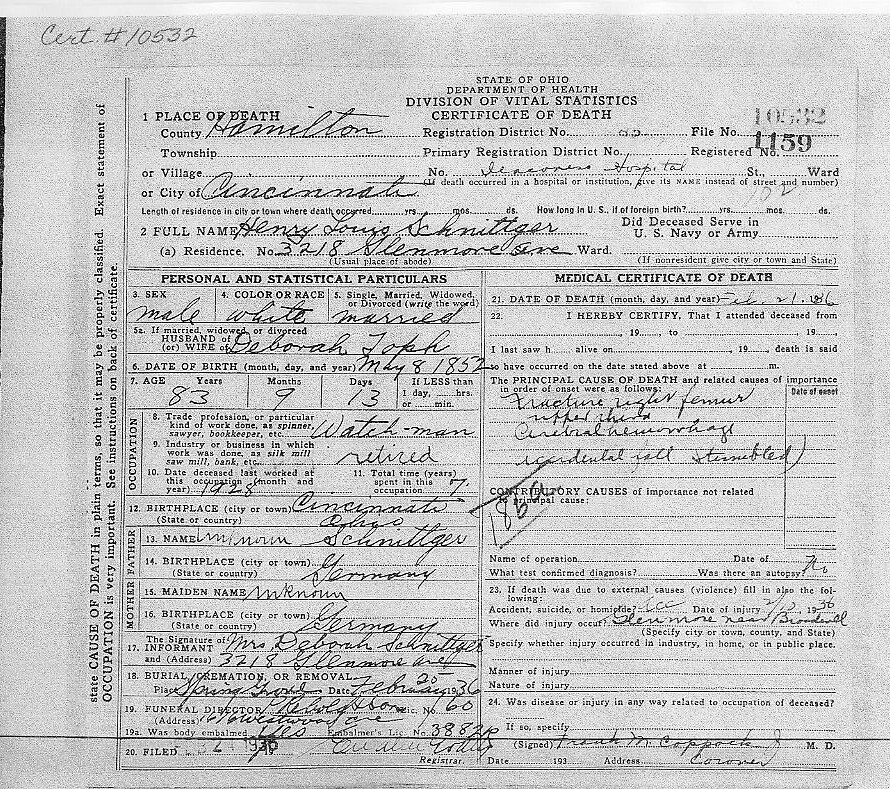 Cert. #10532
STATE OF OHIO
DEPARTMENT OF HEALTH
DIVISION OF VITAL STATISTICS
CERTIFICATE OF DEATH
10532
1 PLACE OF DEATH
County Hamilton Registration District No. File No.
1159
Township Primary Registration District No. Registered No.
or Village No. Deaconess Hospital St., Ward
(If death occurred in a hospital or institution, give its NAME instead of street and number)
or City of Cincinnati
Length of residence in city or town where death occurred yrs. mos. ds. How long in U. S., if of foreign birth? yrs. mos. ds.
2 FULL NAME Henry Louis Schnittger Did Deceased Serve in
U. S. Navy or Army
(a) Residence. No. 3218 Glenmore ave Ward.
(Usual place of abode) (If nonresident give city or town and State)
state CAUSE OF DEATH in plain terms, so that it may be properly classified. Exact statement of
OCCUPATION is very important. See instructions on back of certificate.
PERSONAL AND STATISTICAL PARTICULARS
3. SEX 4. COLOR OR RACE 5. Single, Married, Widowed,
or Divorced (write the word)
male white married
5a. If married, widowed, or divorced
HUSBAND of
(or) WIFE of Deborah Toph
6. DATE OF BIRTH (month, day, and year) May 8 1852
7. AGE Years Months Days If LESS than
1 day, hrs.
or min.
83 9 13
OCCUPATION
8. Trade, profession, or particular
kind of work done, as spinner,
sawyer, bookkeeper, etc. Watch-man
9. Industry or business in which
work was done, as silk mill
saw mill, bank, etc. retired
10. Date deceased last worked at
this occupation (month and
year) 1928
11. Total time (years)
spent in this
occupation 7
12. BIRTHPLACE (city or town) Cincinnati
(State or country) Ohio
FATHER
13. NAME Unknown Schnittger
14. BIRTHPLACE (city or town)
(State or country) Germany
MOTHER
15. MAIDEN NAME Unknown
16. BIRTHPLACE (city or town)
(State or country) Germany
The Signature of
17. INFORMANT Mrs. Deborah Schnittger
and (Address) 3218 Glenmore ave
18. BURIAL, CREMATION, OR REMOVAL
Place Spring Grove Date February 25 1936
19. FUNERAL DIRECTOR & Son Lic. No. 60
(Address) 1616 Westwood ave
19a. Was body embalmed yes Embalmer's Lic. No. 3882
20. FILED
Registrar.
MEDICAL CERTIFICATE OF DEATH
21. DATE OF DEATH (month, day, and year) Feb. 21, 1936
22. I HEREBY CERTIFY, That I attended deceased from
, 19 , to , 19
I last saw h alive on , 19 , death is said
to have occurred on the date stated above at m.
The PRINCIPAL CAUSE OF DEATH and related causes of importance
in order of onset were as follows:
Date of onset
Fracture right femur
upper third
Cerebral hemorrhage
accidental fall stumbled)
CONTRIBUTORY CAUSES of importance not related
to principal cause:
Name of operation Date of
What test confirmed diagnosis? Was there an autopsy? No
23. If death was due to external causes (violence) fill in also the following:
Accident, suicide, or homicide? acc Date of injury 1936
Where did injury occur? Glenmore near
(Specify city or town, county, and State)
Specify whether injury occurred in industry, in home, or in public place.
Manner of injury
Nature of injury
24. Was disease or injury in any way related to occupation of deceased?
If so, specify
(Signed) Frank M. Coppock Jr M. D.
Date 193 Address Coroner